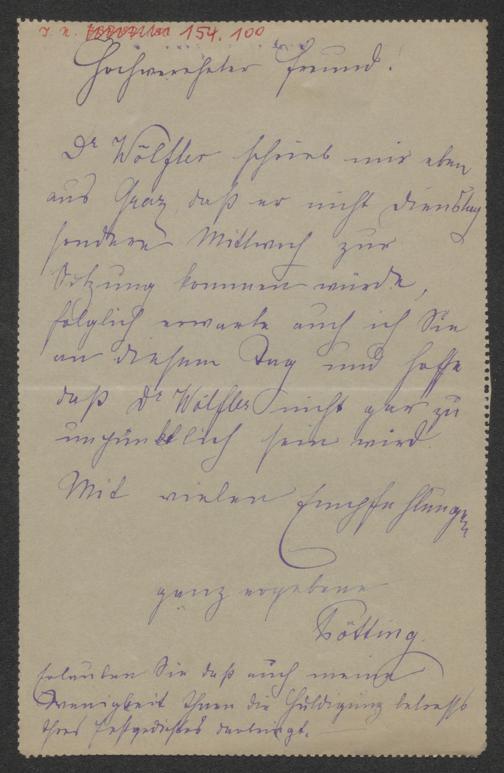 J. N. 154.100
Hochverehrter Freund!
Dr Wölfler schrieb mir eben
aus Graz, daß er nicht Dienstag
sondern Mittwoch zur
Sitzung kommen würde,
folglich erwarte auch ich Sie
an diesem Tag und hoffe
daß Dr Wölfler nicht gar zu
unpünktlich sein wird.
Mit vielen Empfehlungen
ganz ergebene
Pötting.
Erlauben Sie daß auch meine
Wenigkeit Ihnen die Huldigung betreffs
Ihres Festgedichtes darbringt.